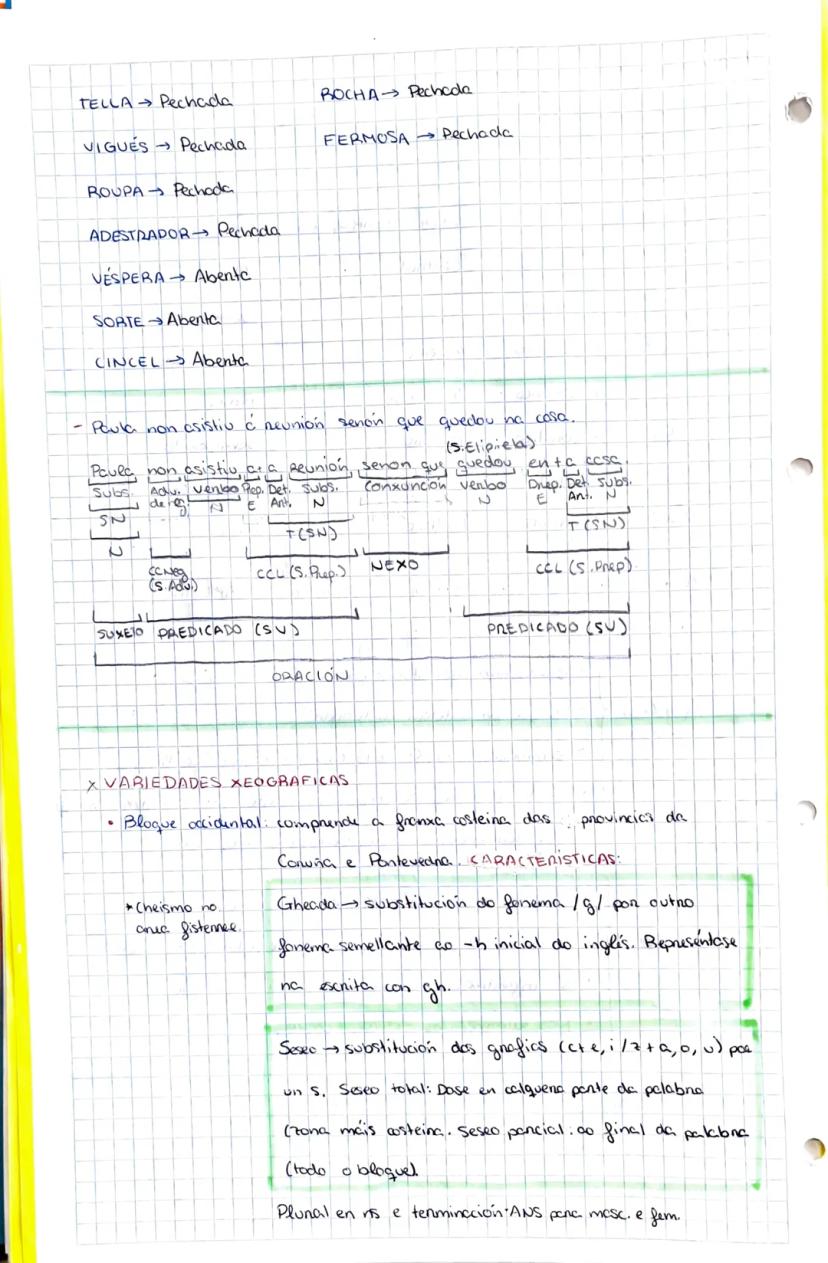 TELLA → Pechada
ROCHA → Pechada
VIGUÉS → Pechada
FERMOSA → Pechada
ROUPA → Pechada
ADESTRADOR → Pechada
VÉSPERA → Aberta
SORTE → Aberta
CINCEL → Aberta
- Paula non asistiu á reunión senón que quedou na casa.
(S.Elíptela)
Paula non asistiu a+a Reunión, senon que quedou en+a casa.
Subs. Adv. Verbo Prep. Det. Subs. Conxunción Verbo Prep. Det. Subs.
de neg. N E Art. N N E Art. N
SN T(SN) T(SN)
N CCNeg CCL (S.Prep.) NEXO CCL (S.Prep)
(S.Adv.)
SUXEIO PREDICADO (SV) PREDICADO (SV)
ORACIÓN
x VARIEDADES XEOGRAFICAS
• Bloque occidental: comprende a franxa costeina das provincias da
Coruña e Pontevedra. CARACTERÍSTICAS:
*Cheísmo no
área fisterree.
Gheada → substitución do fonema /g/ por outro
fonema semellante ao -h inicial do inglés. Represéntase
na escrita con gh.
Seseo → substitución das grafías (c+e, i /z+a, o, u) por
un s. Seseo total: Dase en calquera parte da palabra
(zona máis costeira. Seseo parcial: ao final da palabra
(todo o bloque).
Plural en ns e terminación -ANS para masc. e fem.